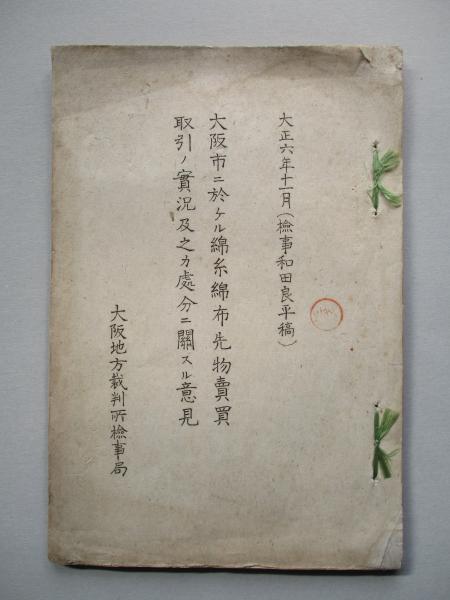 大正六年十一月(檢事和田良平稿)
大阪市ニ於ケル綿糸綿布先物賣買
取引ノ實況及之カ處分ニ關スル意見
大阪地方裁判所檢事局